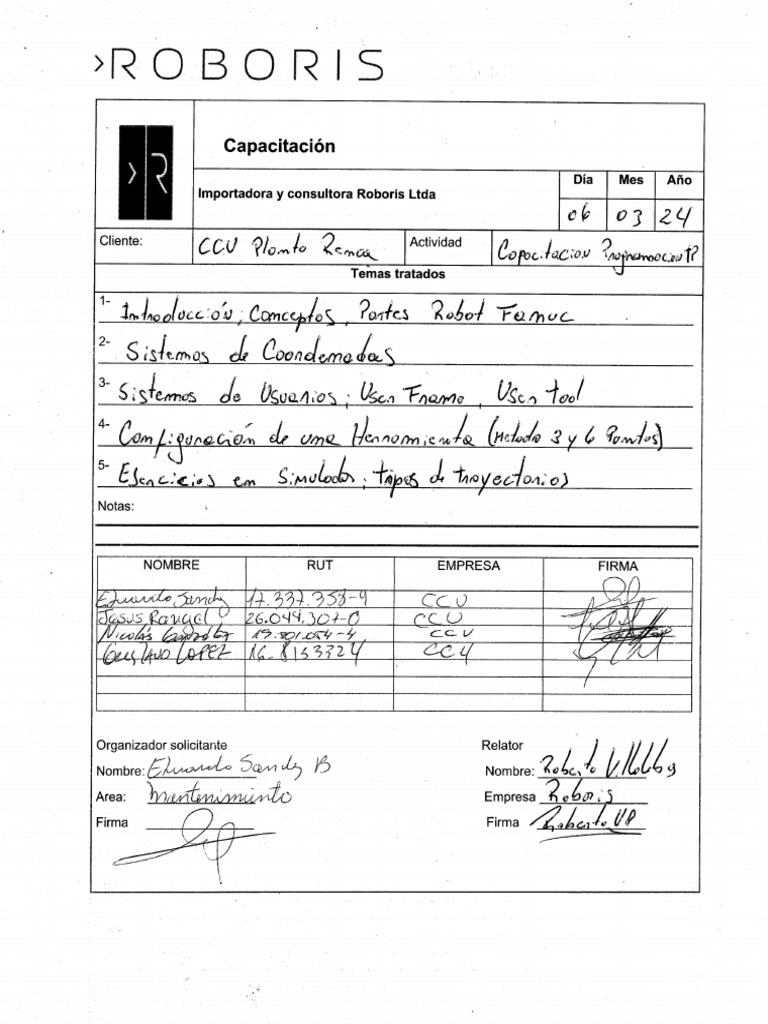 >ROBORIS
>R
Capacitación
Importadora y consultora Roboris Ltda
Día Mes Año
06 03 24
Cliente: CCU Planta Renca Actividad Capacitacion Programacion TP
Temas tratados
1- Introducción; Conceptos, Partes Robot Fanuc
2- Sistemas de Coordenadas
3- Sistemas de Usuarios; User Frame, User tool
4- Configuración de una Herramienta (Metodo 3 y 6 Puntos)
5- Esercicios en Simulador; tipos de trayectorias
Notas:
NOMBRE RUT EMPRESA FIRMA
Eduardo Sandy 17.337.358-9 CCU
Jesus Rangel 26.044.307-0 CCU
Nicolás González CCU
Gustavo Lopez CCU
Organizador solicitante Relator
Nombre: Eduardo Sandy B Nombre: Roberto
Area: Mantenimiento Empresa Roboris
Firma Firma Roberto VP